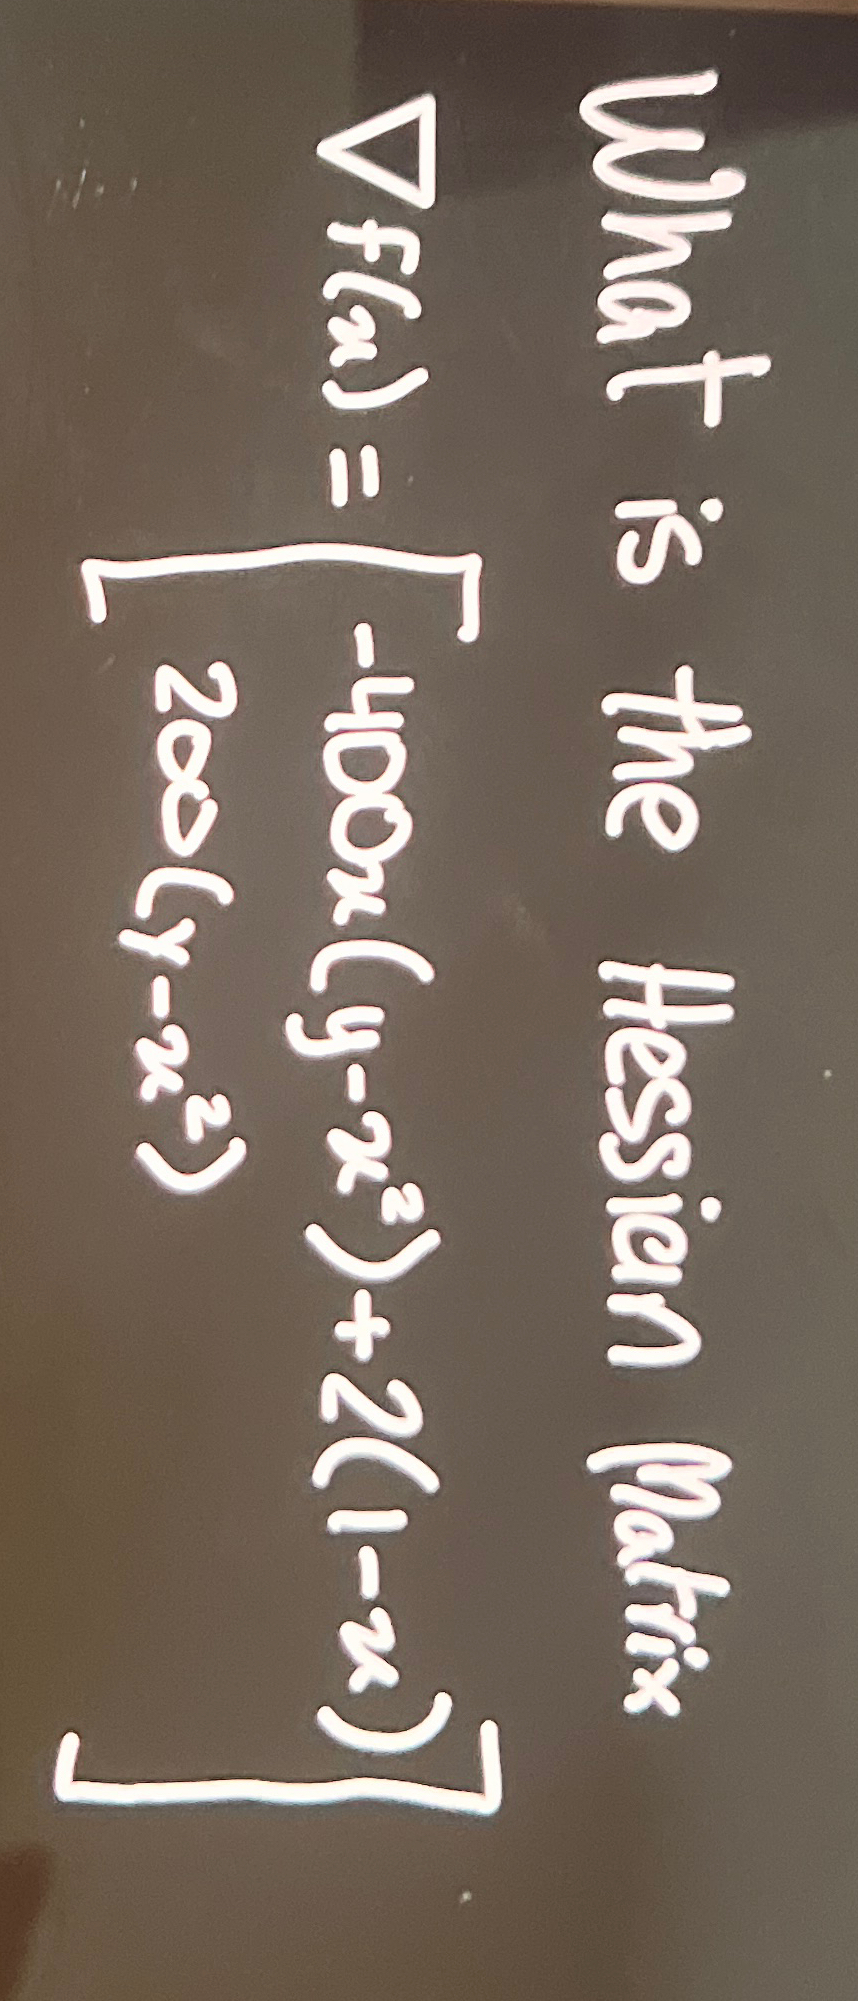 What is the Hessian Matrix
∇f(x) = [ -400x(y-x²)+2(1-x)
200(y-x²) ]